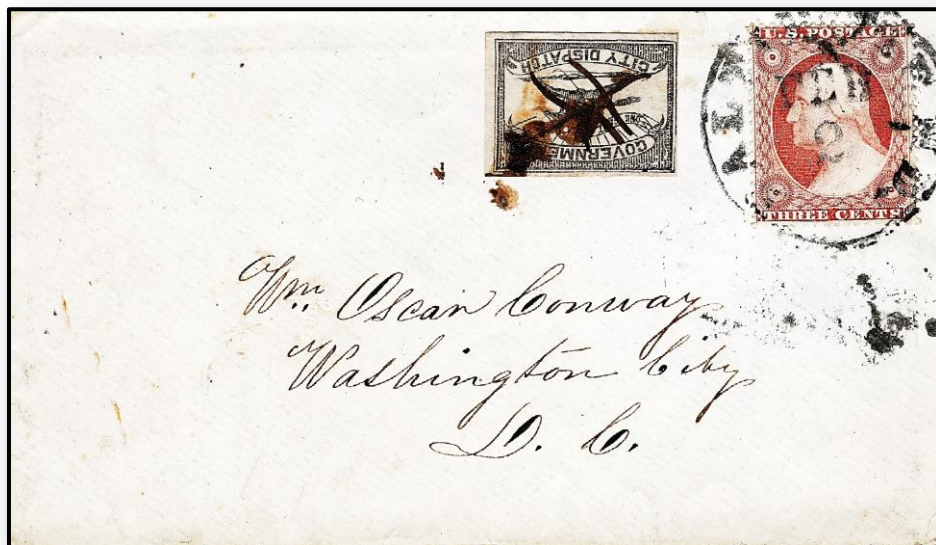 GOVERNMENT
CITY DISPATCH
U.S. POSTAGE
THREE CENTS
Wm. Oscar Conway
Washington City
D. C.